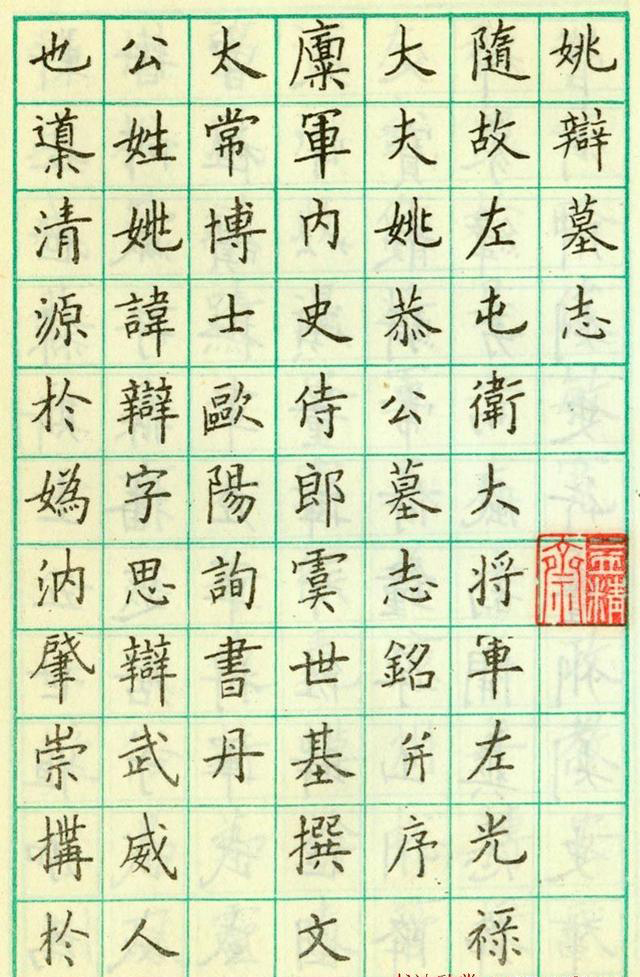 姚辯墓志
隨故左屯衛大将軍左光禄
大夫姚恭公墓志銘并序
廩軍内史侍郎虞世基撰文
太常博士歐陽詢書丹
公姓姚諱辯字思辯武威人
也導清源於媯汭肇崇搆於